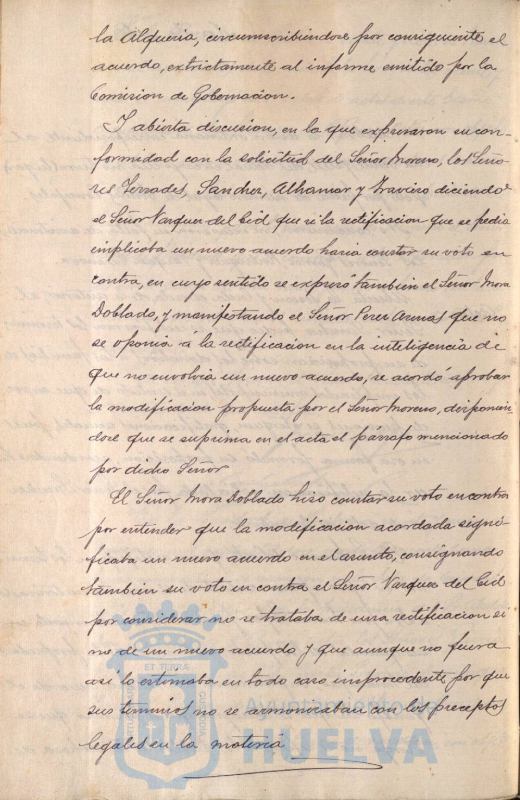 la Alqueria, circumscribiendose por consiguiente el
acuerdo, extrictamente al informe emitido por la
Comision de Gobernacion.
Y abierta discusion, en la que expresaron su con-
formidad con la solicitud del Señor Moreno, los Seño-
res Terrades, Sanchez, Alhamar y Traviño diciendo
el Señor Vazquez del Cid que si la rectificacion que se pedia
implicaba un nuevo acuerdo haria constar su voto en
contra, en cuyo sentido se expresó tambien el Señor Mora
Doblado, y manifestando el Señor Perez Armas que no
se oponia á la rectificacion en la inteligencia de
que no envolvia un nuevo acuerdo, se acordó aprobar
la modificacion propuesta por el Señor Moreno, disponien-
dose que se suprima en el acta el párrafo mencionado
por dicho Señor
El Señor Mora Doblado hizo constar su voto en contra
por entender que la modificacion acordada signi-
ficaba un nuevo acuerdo en el asunto, consignando
tambien su voto en contra el Señor Vazquez del Cid
por considerar no se trataba de una rectificacion si
no de un nuevo acuerdo y que aunque no fuera
asi lo estimaba en todo caso improcedente por que
sus terminos no se armonizaban con los preceptos
legales en la materia
ET TERRA
HUELVA